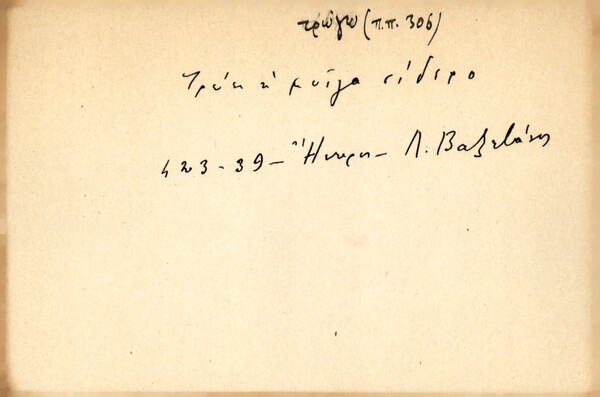 τρώγω (π.π. 306)
Τρώει ἡ μυῖγα σίδερο
423-39 - Ἤπειρ - Λ. Βαζεβάνης